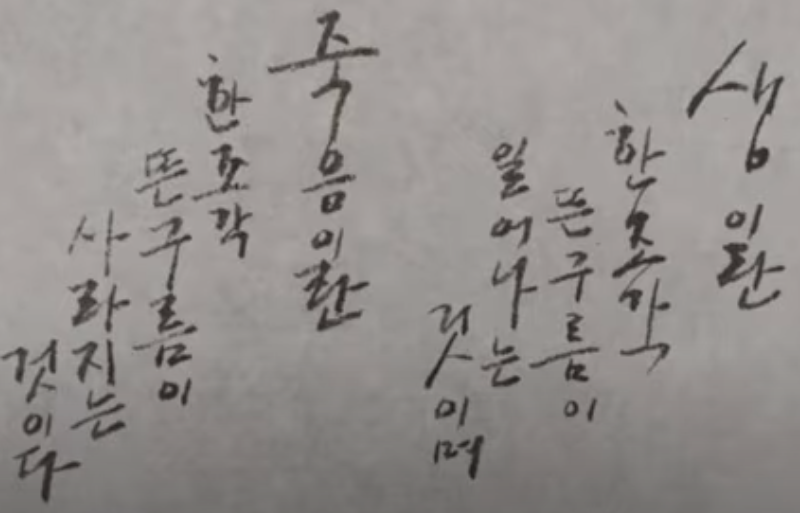 생이란
한조각
뜬구름이
일어나는
것이며
죽음이란
한조각
뜬구름이
사라지는
것이다